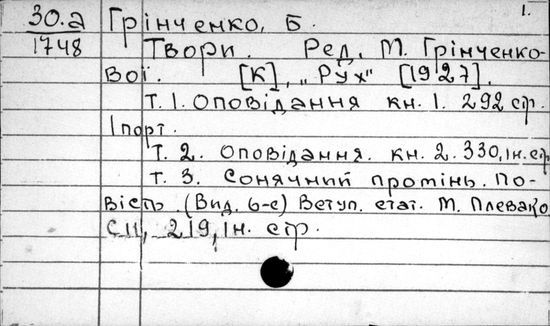 30.а Грінченко, Б. 1.
1748 Твори. Ред. М. Грінченко-
вої. [К], „Рух" [1927].
Т. 1. Оповідання кн. 1. 292 стр.
1 порт.
Т. 2. Оповідання. кн. 2. 330, Ін. стр
Т. 3. Сонячний промінь. По-
вість. (Вид. 6-е) Вступ. стат. М. Плевако
СІІ, 219, Ін. стр.